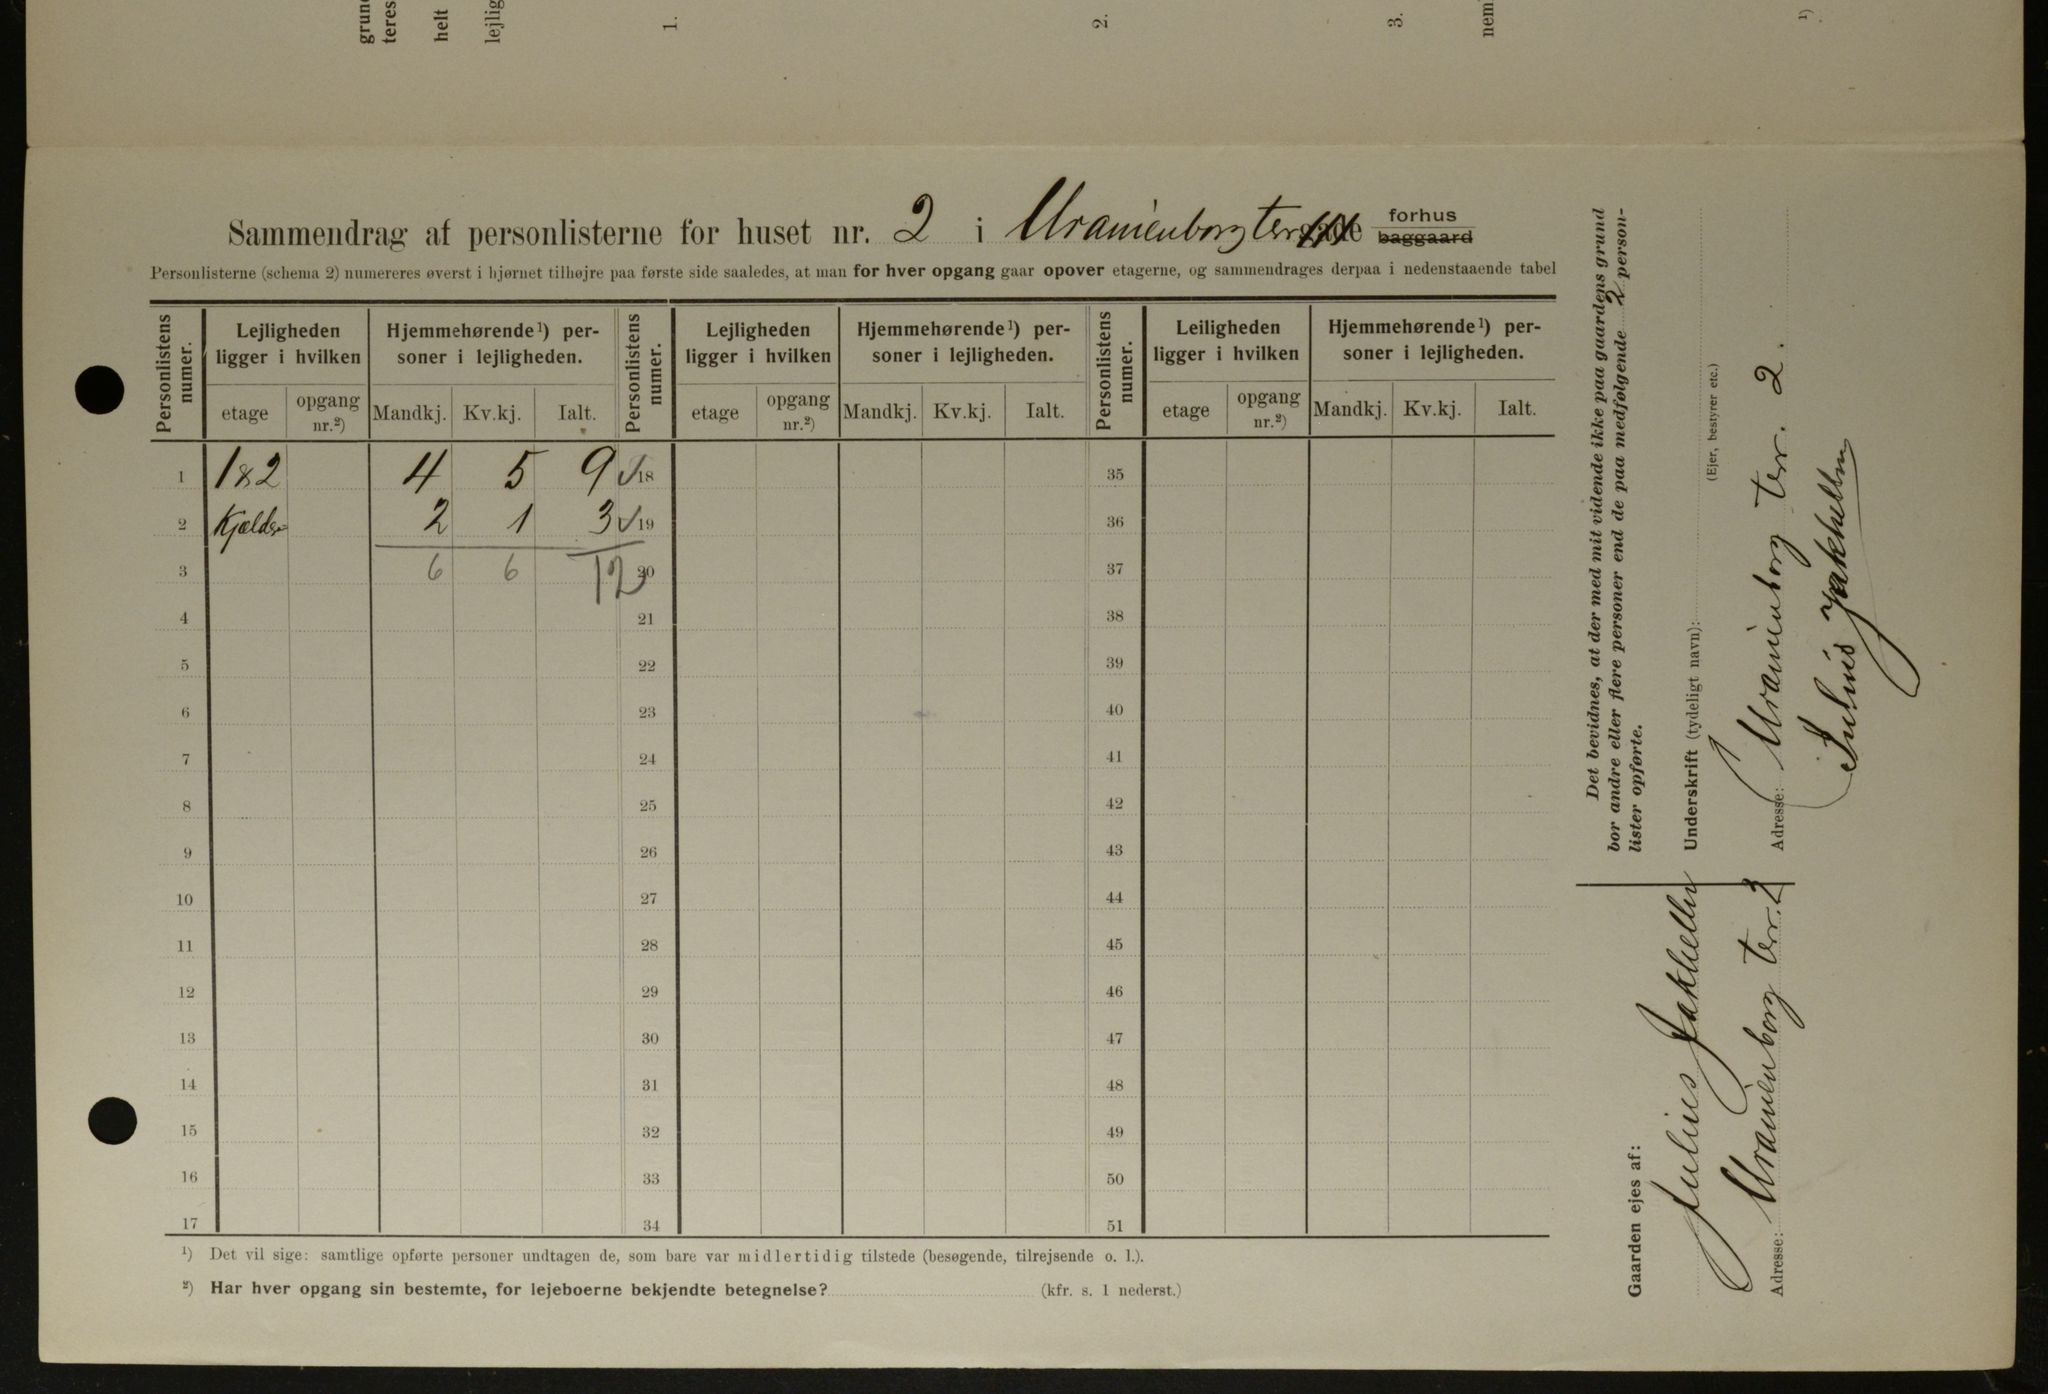 grund
teres
helt
lejlig
1.
2.
3.
nem
¹)
Sammendrag af personlisterne for huset nr. 2 i Uranienborg ter. gade forhus baggaard
Personlisterne (schema 2) numereres øverst i hjørnet tilhøjre paa første side saaledes, at man for hver opgang gaar opover etagerne, og sammendrages derpaa i nedenstaaende tabel
Personlistens numer.
Lejligheden ligger i hvilken
Hjemmehørende¹) personer i lejligheden.
Personlistens numer.
Lejligheden ligger i hvilken
Hjemmehørende¹) personer i lejligheden.
Personlistens numer.
Leiligheden ligger i hvilken
Hjemmehørende¹) personer i lejligheden.
etage opgang nr.²) Mandkj. Kv.kj. Ialt. etage opgang nr.²) Mandkj. Kv.kj. Ialt. etage opgang nr.²) Mandkj. Kv.kj. Ialt.
1 1 & 2 4 5 9 ✓ 18 35
2 Kjælder 2 1 3 ✓ 19 36
3 6 6 12 20 37
4 21 38
5 22 39
6 23 40
7 24 41
8 25 42
9 26 43
10 27 44
11 28 45
12 29 46
13 30 47
14 31 48
15 32 49
16 33 50
17 34 51
¹) Det vil sige: samtlige opførte personer undtagen de, som bare var midlertidig tilstede (besøgende, tilrejsende o. l.).
²) Har hver opgang sin bestemte, for lejeboerne bekjendte betegnelse? (kfr. s. 1 nederst.)
Det bevidnes, at der med mit vidende ikke paa gaardens grund
bor andre eller flere personer end de paa medfølgende 2 person-
lister opførte.
Underskrift (tydeligt navn):
(Ejer, bestyrer etc.)
Adresse: Uranienborg ter. 2.
Julius Jakhelln
Gaarden ejes af:
Julius Jakhelln
Adresse: Uranienborg ter. 2